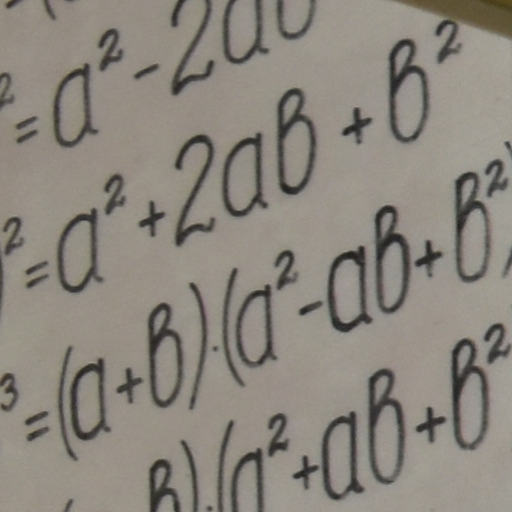 ² = a² - 2ab
)² = a² + 2ab + b²
³ = (a + b) · (a² - ab + b²)
b) · (a² + ab + b²